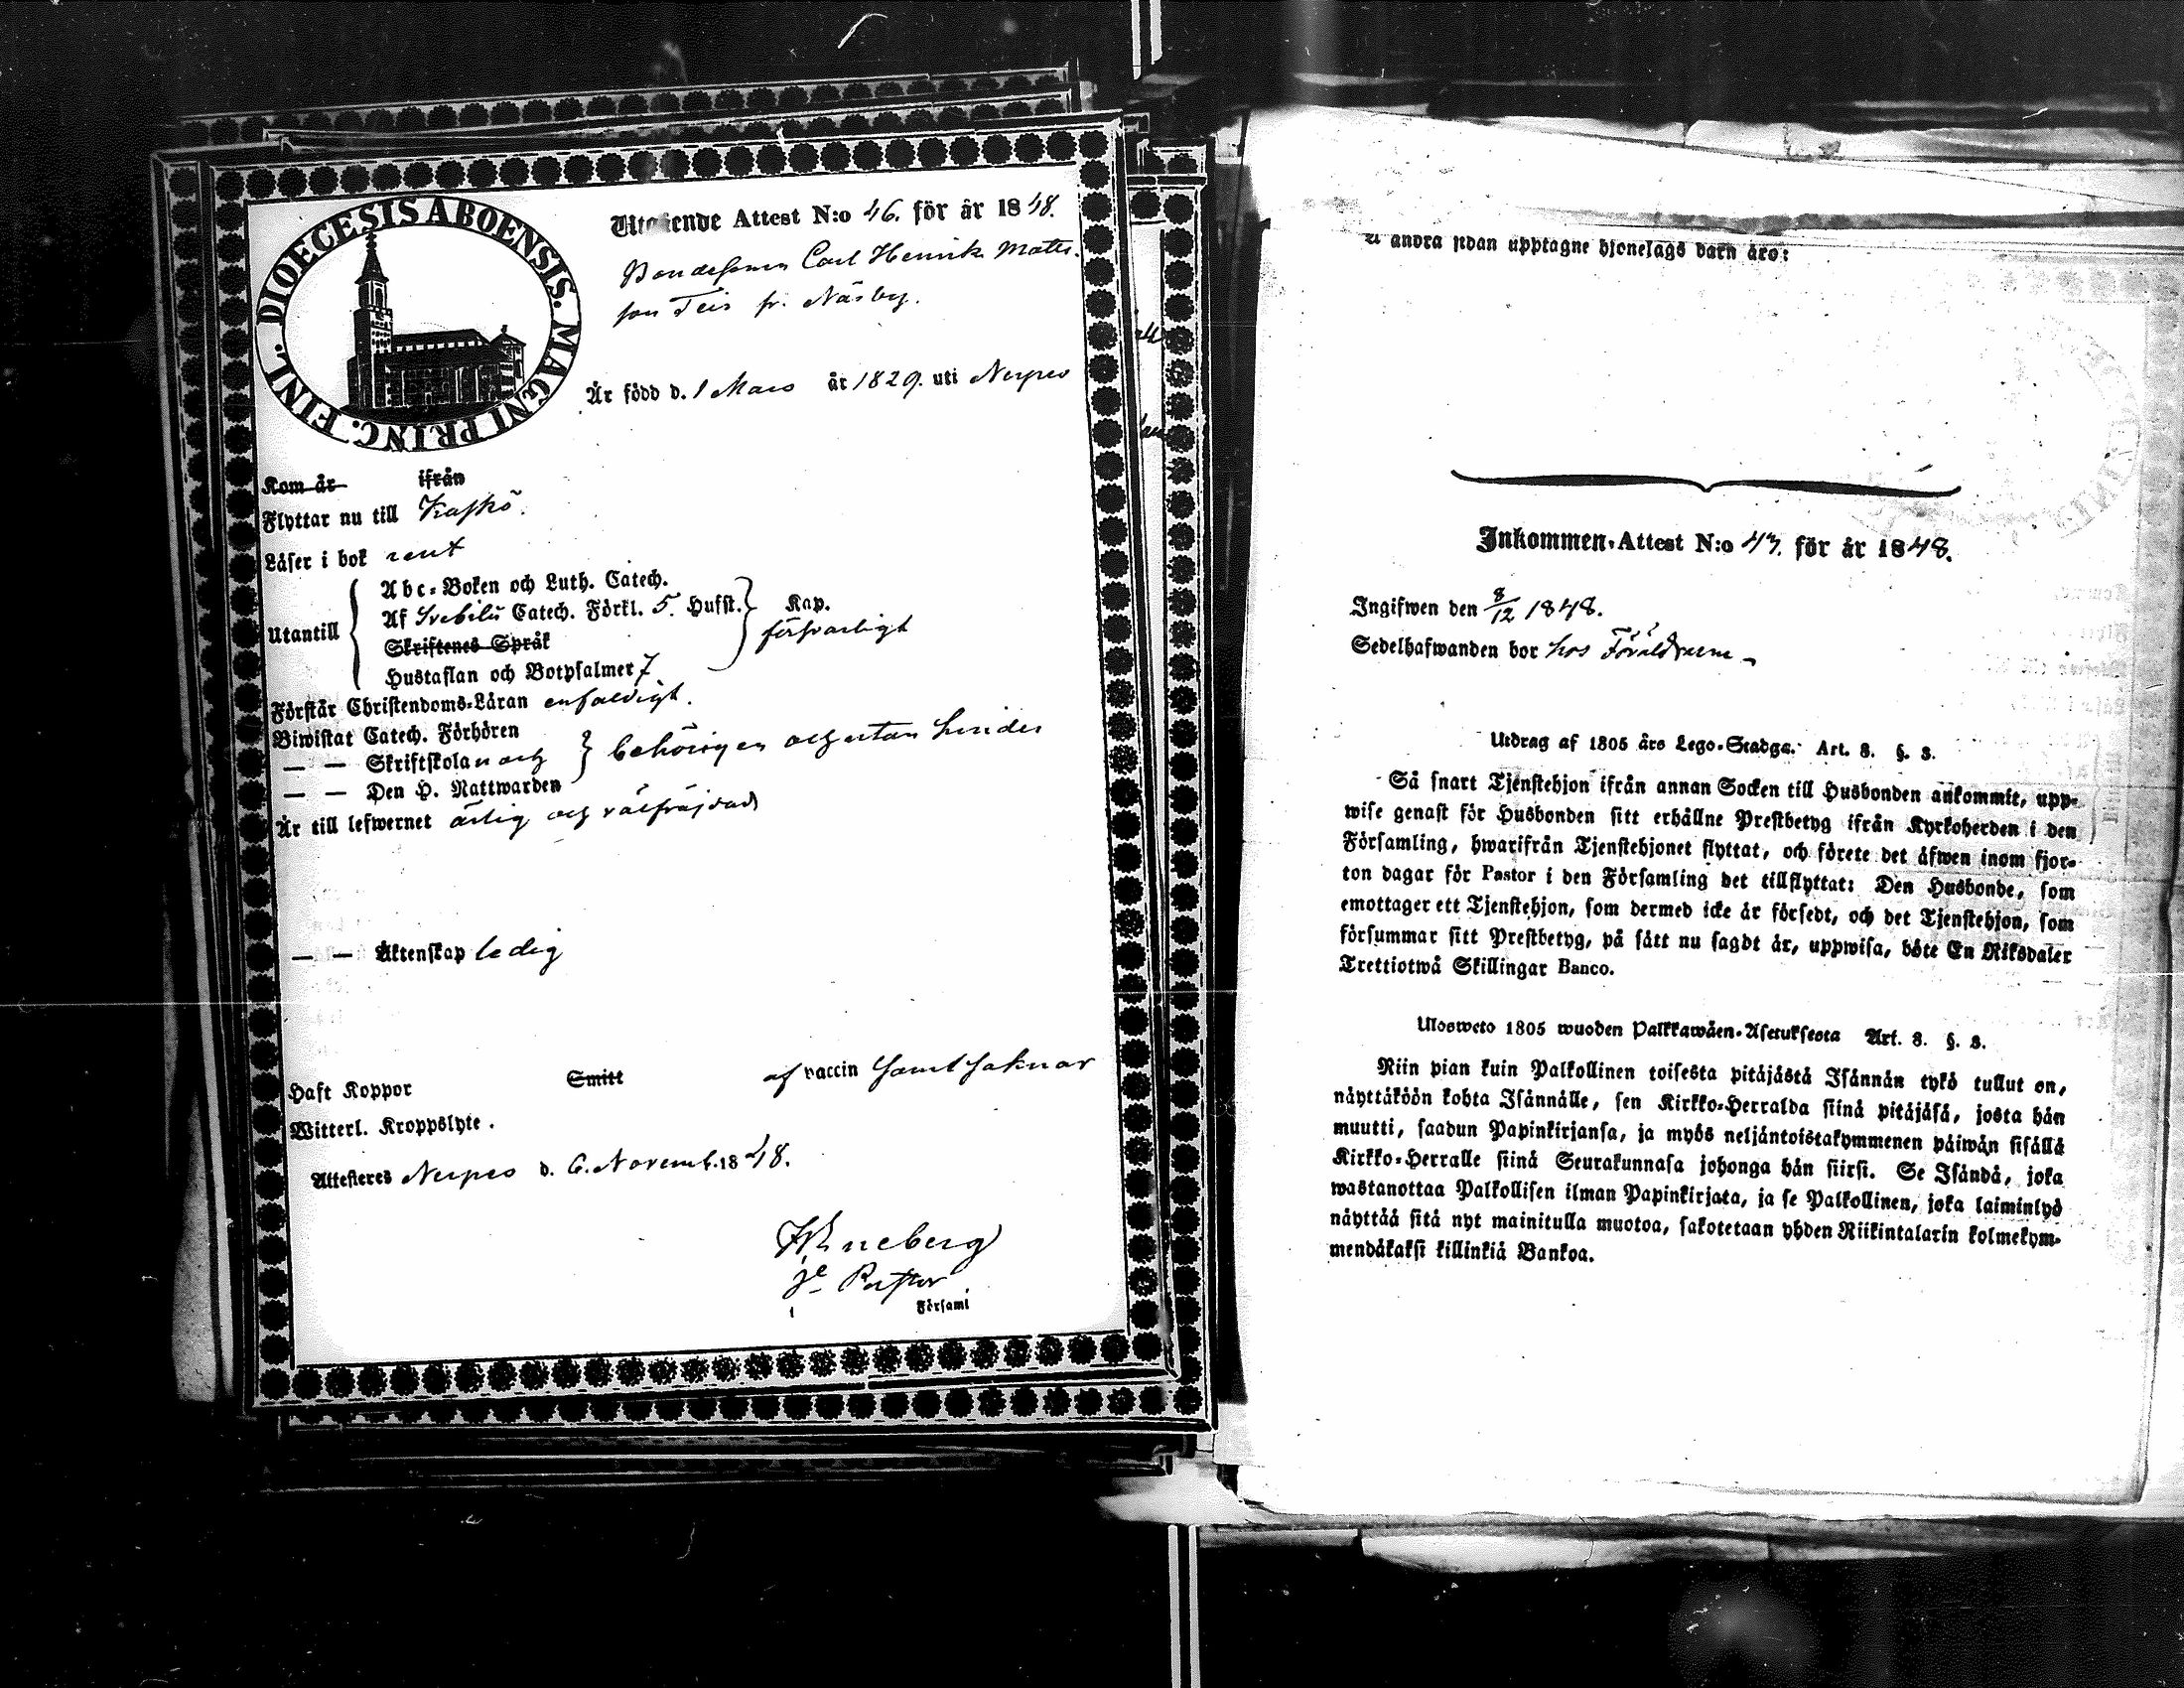 DIOECESIS ABOENSIS. MAGNI PRINC. FINL.
Utgående Attest N:o 46. för år 1848.
Bondesonen Carl Henrik Matts-
son Teir fr. Näsby.
Är född d. 1 Mars år 1829. uti Nerpes
Kom år ifrån
Flyttar nu till Kaskö.
Läser i bok rent
Utantill
Abc-Boken och Luth. Catech.
Af Svebilii Catech. Förkl. 5. Hufst. Kap.
Skriftenes Språk
försvarligt
Hustaflan och Botpsalmer 7
Förstår Christendoms-Läran enfaldigt.
Biwistat Catech. Förhören
— — Skriftskolan och
behörigen och utan hinder
— — Den H. Nattwarden
Är till lefwernet ärlig och välfräjdad
— — Äktenskap ledig
Haft Koppor Smitt af vaccin samt saknar
Witterl. Kroppslyte.
Attesteras Nerpes d. 6. Novemb. 1848.
Pastor
Församl
andra sidan upptagne hjonelags barn äro:
Inkommen-Attest N:o 47. för år 1848.
Ingifwen den 8/12 1848.
Sedelhafwanden bor hos Föräldrarne
Utdrag af 1805 års Lego-Stadga. Art. 8. §. 3.
Så snart Tjenstehjon ifrån annan Socken till Husbonden ankommit, upp-
wise genast för Husbonden sitt erhållne Prestbetyg ifrån Kyrkoherden i den
Församling, hwarifrån Tjenstehjonet flyttat, och förete det äfwen inom fjor-
ton dagar för Pastor i den Församling det tillflyttat: Den Husbonde, som
emottager ett Tjenstehjon, som dermed icke är försedt, och det Tjenstehjon, som
försummar sitt Prestbetyg, på sätt nu sagdt är, uppwisa, böte En Riksdaler
Trettiotwå Skillingar Banco.
Ulosweto 1805 wuoden Palkkawäen-Asetuksesta Art. 8. §. 3.
Niin pian kuin Palkollinen toisesta pitäjästä Isännän tykö tullut on,
näyttäköön kohta Isännälle, sen Kirkko-Herralda siinä pitäjäsä, josta hän
muutti, saadun Papinkirjansa, ja myös neljäntoistakymmenen päiwän sisällä
Kirkko-Herralle siinä Seurakunnasa johonga hän siirsi. Se Isändä, joka
wastanottaa Palkollisen ilman Papinkirjata, ja se Palkollinen, joka laiminlyö
näyttää sitä nyt mainitulla muotoa, sakotetaan yhden Riikintalarin kolmekym-
mendäkaksi killinkiä Bankoa.